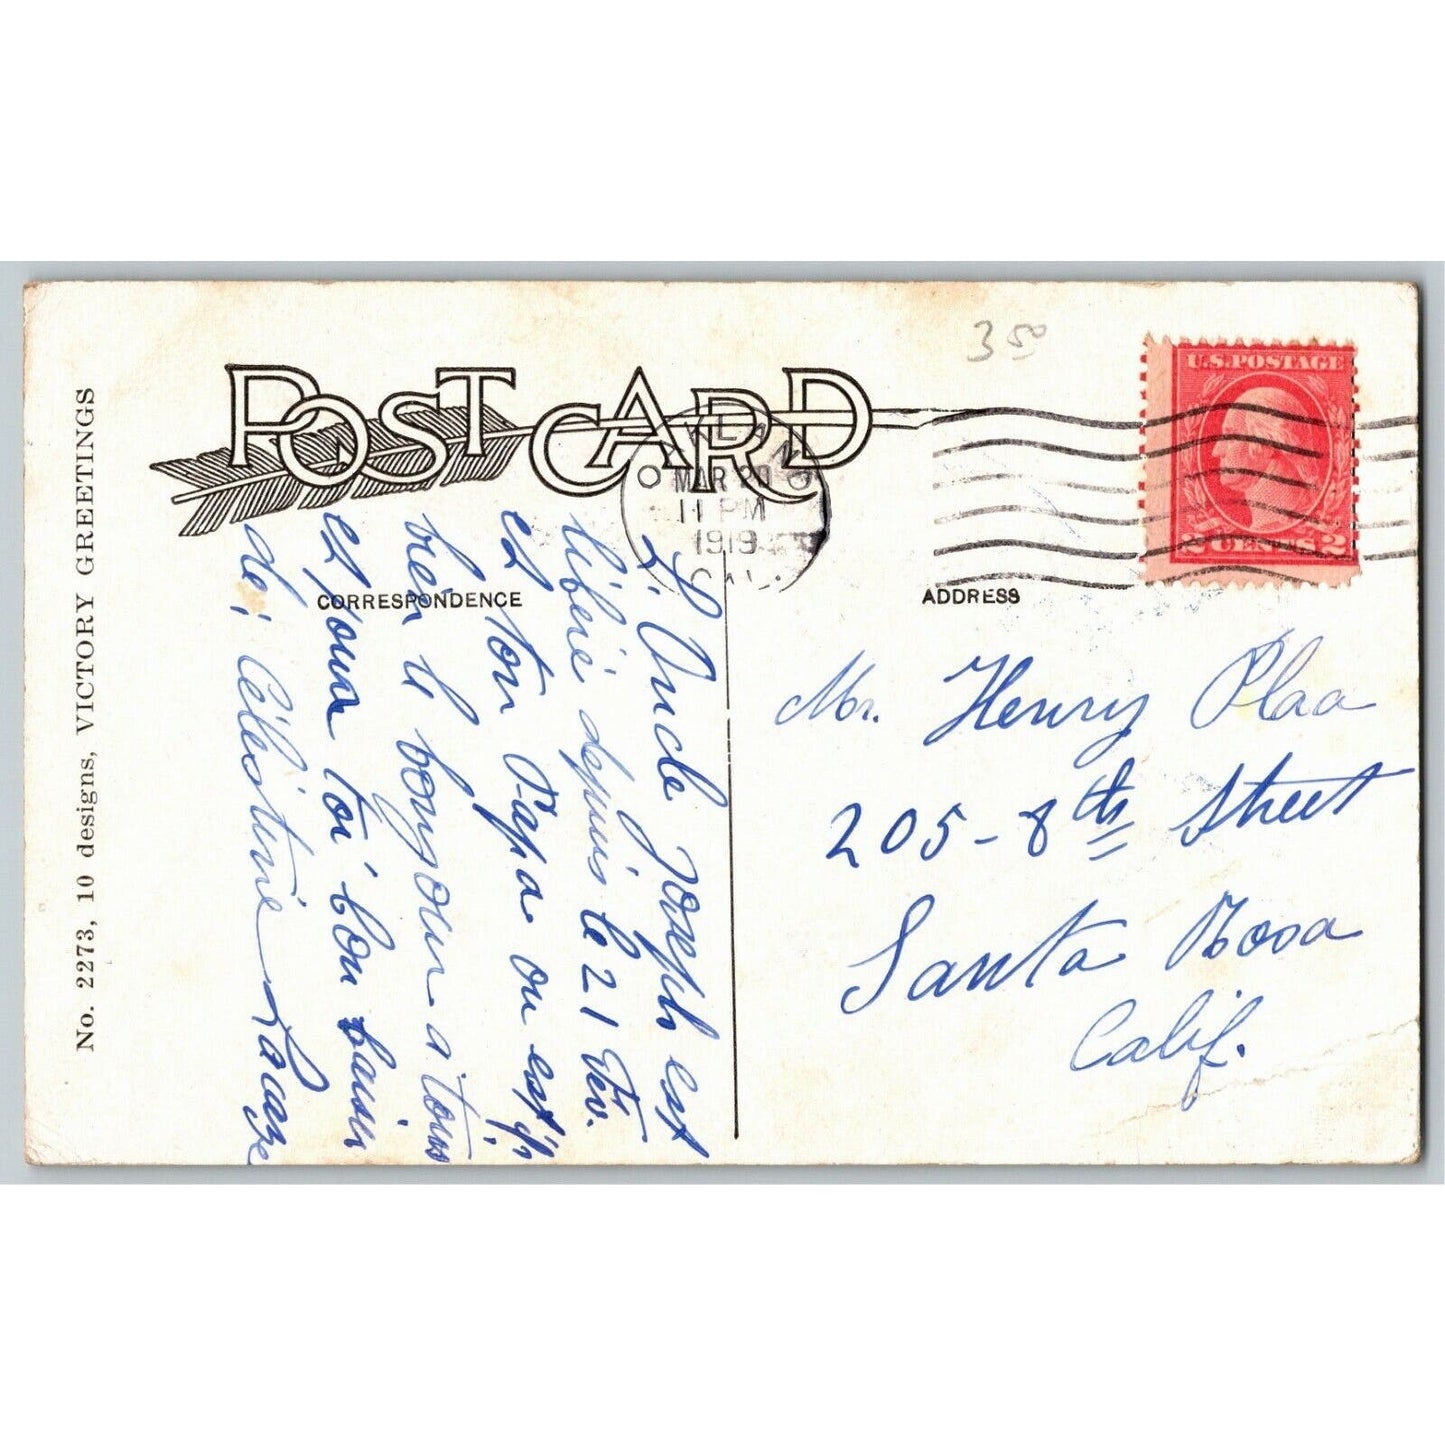 3 50
U.S. POSTAGE
2 CENTS 2
POST CARD
MAR 20
11 PM
1919
CAL.
CORRESPONDENCE
ADDRESS
No. 2273, 10 designs, VICTORY GREETINGS
L. Oncle Joseph est
libéré depuis le 21 Fév.
et ton Papa ou est'il;
bien le bonjour a tous
et pour toi bon baiser
de; Célestine Lacaze
Mr. Henry Plaa
205-8th Street
Santa Rosa
Calif.